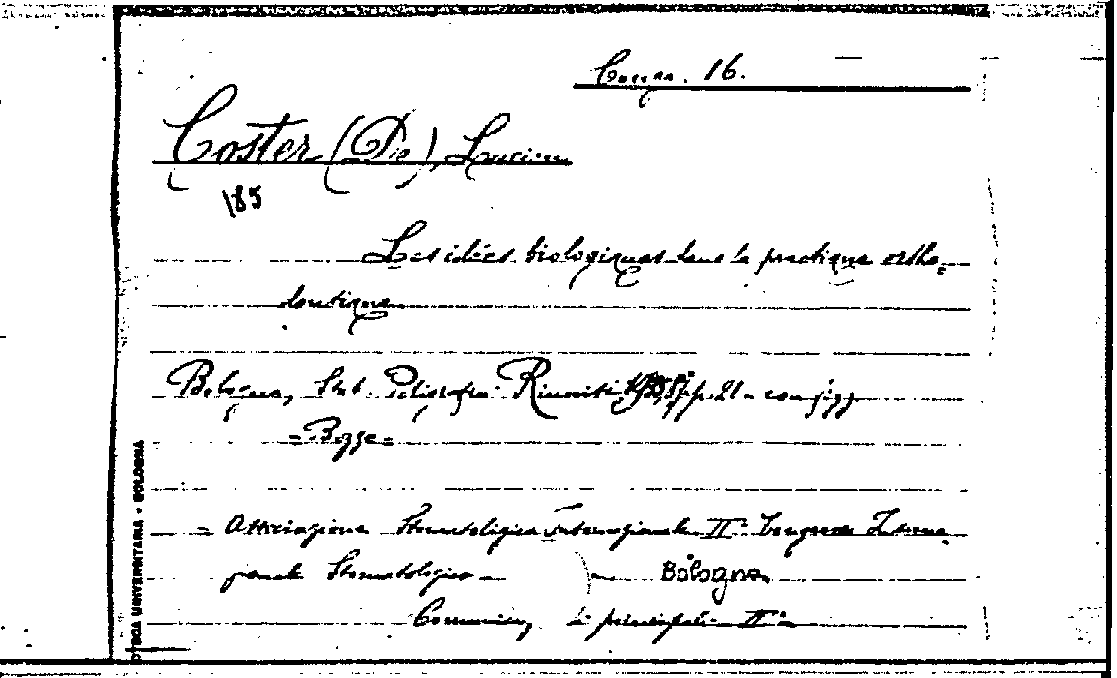 16.
Coster (De) Lucien
185
Les idées biologiques dans la pratique ortho=
dontique
Bologna, Stab. Poligrafici Riuniti 1935, pp. 21 - con figg
= Bozze =
= Associazione Stomatologica Internazionale II° Congresso Interna
zionale Stomatologico - Bologna
principali II°
UNIVERSITARIA • BOLOGNA